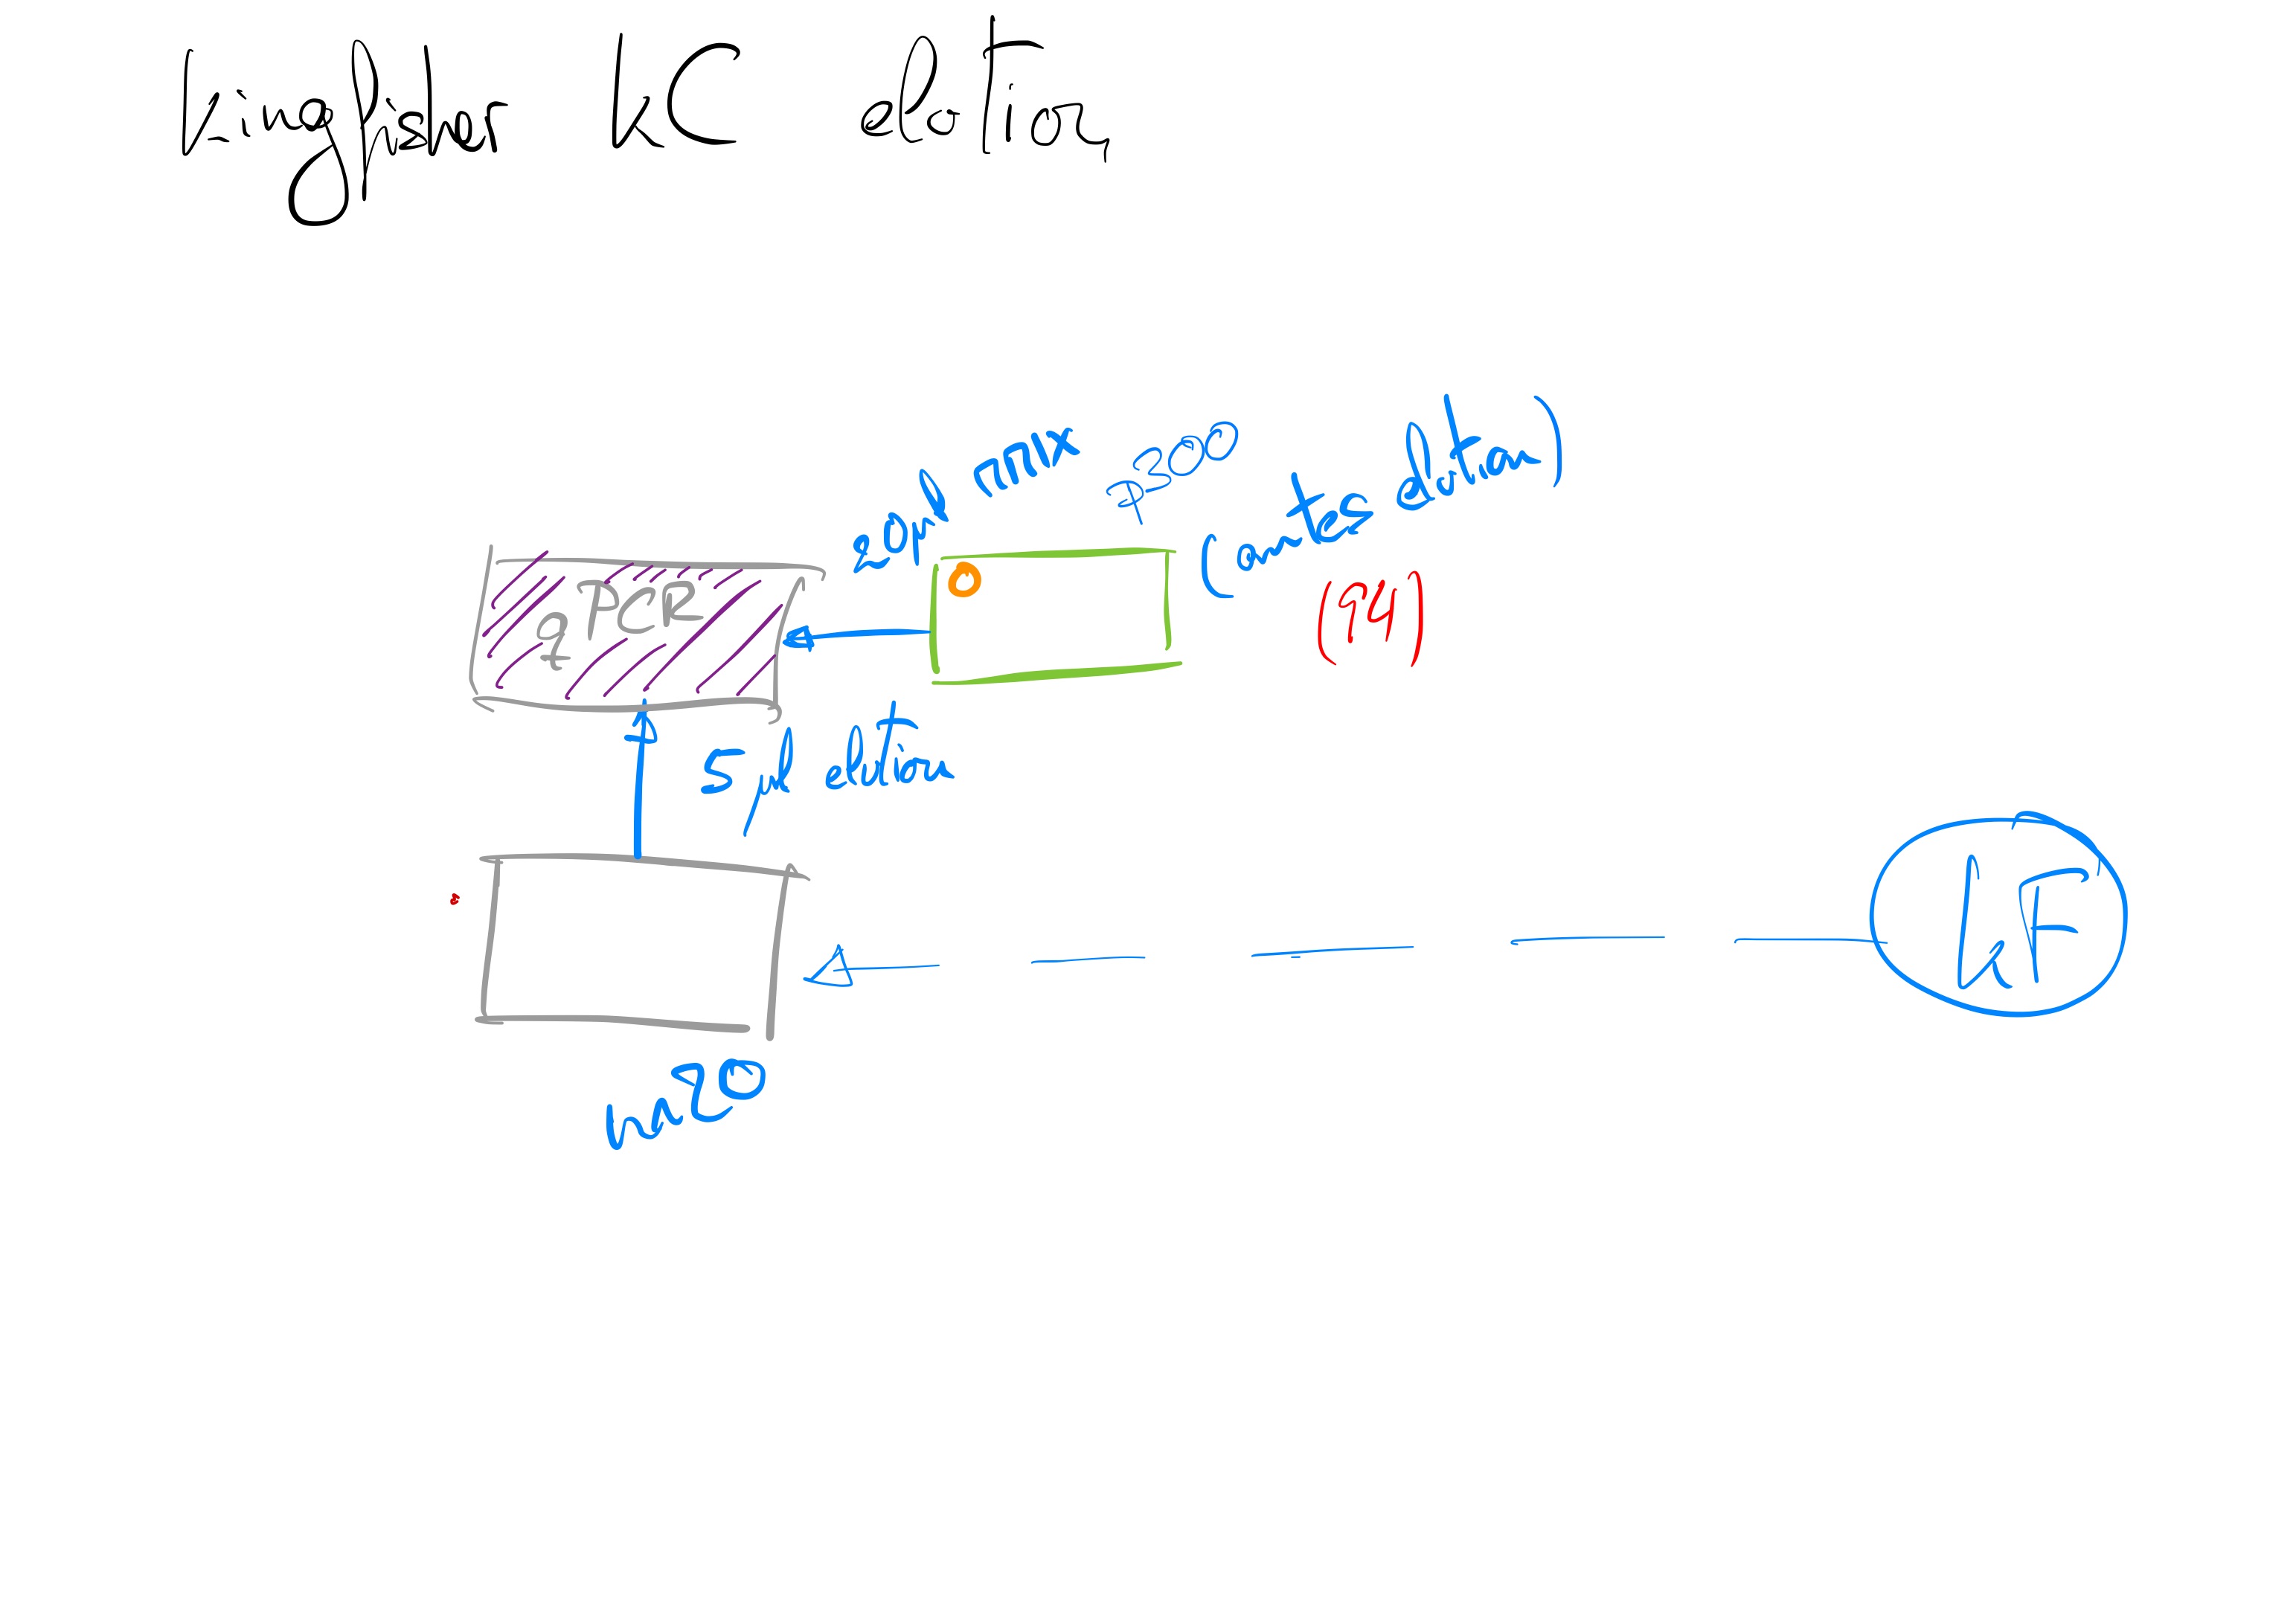 kingfisher KC elution
20µl mix P300
(antes elution)
(94)
qPCR
5µl elution
KF
m20